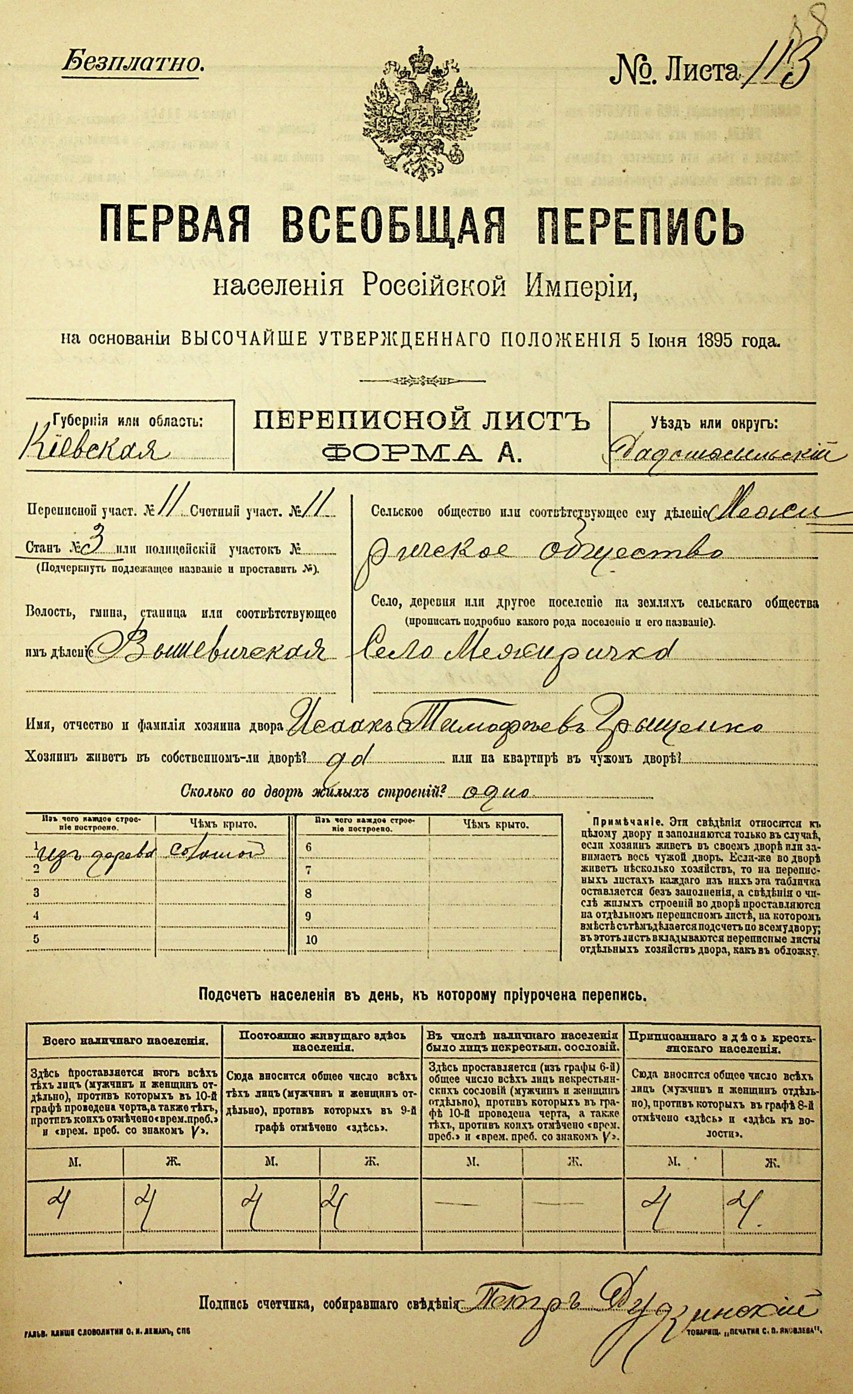 58
Безплатно.
№. Листа 113
ПЕРВАЯ ВСЕОБЩАЯ ПЕРЕПИСЬ
населенія Россійской Имперіи,
на основаніи ВЫСОЧАЙШЕ УТВЕРЖДЕННАГО ПОЛОЖЕНІЯ 5 Іюня 1895 года.
Губернія или область:
Кіевская
ПЕРЕПИСНОЙ ЛИСТЪ
ФОРМА А.
Уѣздъ или округъ:
Радомысльскій
Переписной участ. № 11 Счетный участ. № 11
Станъ № 3 или полицейскій участокъ №
(Подчеркнуть подлежащее названіе и проставить №).
Волость, гмина, станица или соотвѣтствующее
имъ дѣленіе Вышевичская
Сельское общество или соотвѣтствующее ему дѣленіе Межи
ричское общество
Село, деревня или другое поселеніе на земляхъ сельскаго общества
(прописать подробно какого рода поселеніе и его названіе).
Село Межиричка
Имя, отчество и фамилія хозяина двора Исаакъ Тимофѣевъ Грыщенко
Хозяинъ живетъ въ собственномъ-ли дворѣ? да или на квартирѣ въ чужомъ дворѣ?
Сколько во дворѣ жилыхъ строеній? одно
Изъ чего каждое строе-
ніе построено.
Чѣмъ крыто.
1 изъ дерева соломой
2
3
4
5
Изъ чего каждое строе-
ніе построено.
Чѣмъ крыто.
6
7
8
9
10
Примѣчаніе. Эти свѣдѣнія относятся къ
цѣлому двору и заполняются только въ случаѣ,
если хозяинъ живетъ въ своемъ дворѣ или за-
нимаетъ весь чужой дворъ. Если-же во дворѣ
живетъ нѣсколько хозяйствъ, то на перепис-
ныхъ листахъ каждаго изъ нихъ эта табличка
оставляется безъ заполненія, а свѣдѣнія о чи-
слѣ жилыхъ строеній во дворѣ проставляются
на отдѣльномъ переписномъ листѣ, на которомъ
вмѣстѣ съ тѣмъ дѣлается подсчетъ по всему двору;
въ этотъ листъ вкладываются переписные листы
отдѣльныхъ хозяйствъ двора, какъ въ обложку.
Подсчетъ населенія въ день, къ которому пріурочена перепись.
Всего наличнаго населенія.
Здѣсь проставляется итогъ всѣхъ
тѣхъ лицъ (мужчинъ и женщинъ от-
дѣльно), противъ которыхъ въ 10-й
графѣ проведена черта, а также тѣхъ,
противъ коихъ отмѣчено «врем. преб.»
и «врем. преб. со знакомъ V».
М. Ж.
4 4
Постоянно живущаго здѣсь
населенія.
Сюда вносится общее число всѣхъ
тѣхъ лицъ (мужчинъ и женщинъ от-
дѣльно), противъ которыхъ въ 9-й
графѣ отмѣчено «здѣсь».
М. Ж.
4 4
Въ числѣ наличнаго населенія
было лицъ некрестьян. сословій.
Здѣсь проставляется (изъ графы 6-й)
общее число всѣхъ лицъ некрестьян-
скихъ сословій (мужчинъ и женщинъ
отдѣльно), противъ которыхъ въ гра-
фѣ 10-й проведена черта, а также
тѣхъ, противъ коихъ отмѣчено «врем.
преб.» и «врем. преб. со знакомъ V».
М. Ж.
— —
Приписаннаго здѣсь кресть-
янскаго населенія.
Сюда вносится общее число всѣхъ
лицъ (мужчинъ и женщинъ отдѣль-
но), противъ которыхъ въ графѣ 8-й
отмѣчено «здѣсь» и «здѣсь къ во-
лости».
М. Ж.
4 4
Подпись счетчика, собиравшаго свѣдѣнія Петръ Дудзинскій
ГАЛЬВ. КЛИШЕ СЛОВОЛИТНИ О. И. ЛЕМАНЪ, СПБ
ТОВАРИЩ. „ПЕЧАТНЯ С. П. ЯКОВЛЕВА".